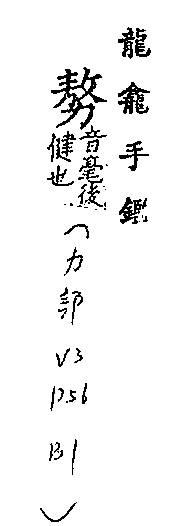 龍龕手鑑
𠢕
音毫後
健也
(力部 V3
P56
B1
)